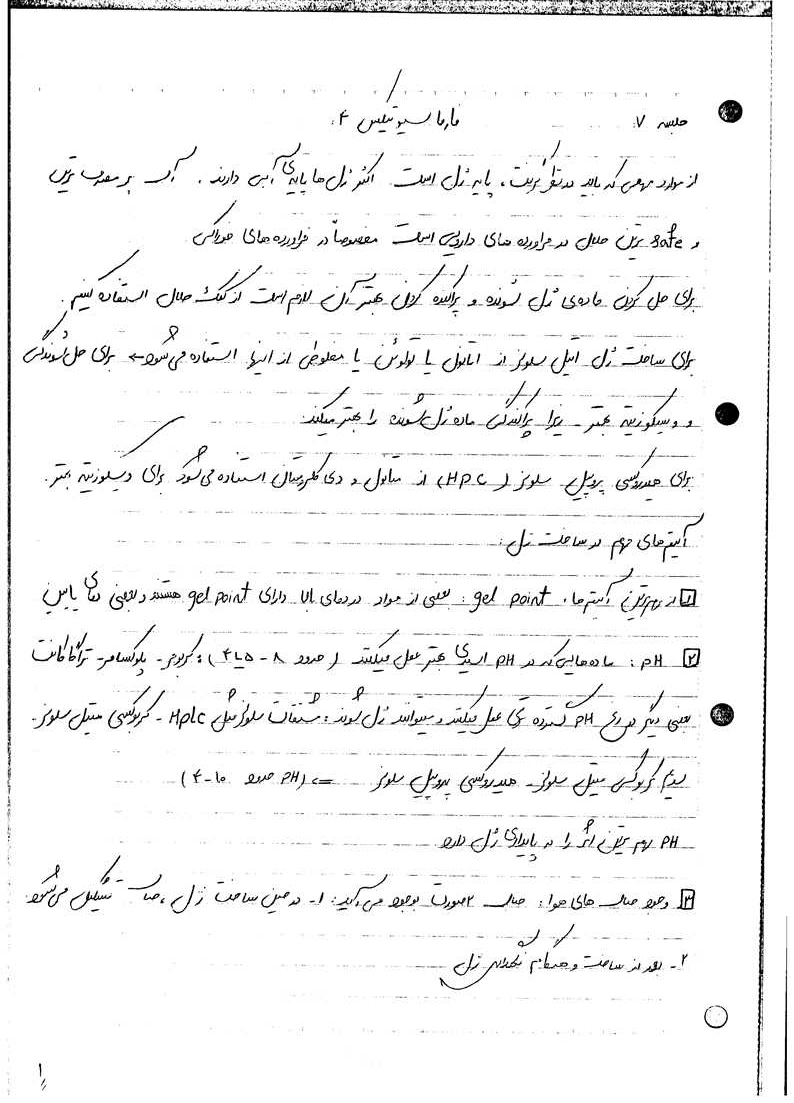 جلسه ۷:
فارماسیوتیکس ۴:
از موارد مهمی که باید در نظر گرفت، پایه ژل است. اکثر ژل ها پایه‌ی آبی دارند. آب پر مصرف ترین
و safe ترین حلال در فراورده های دارویی است مخصوصاً در فراورده های خوراکی
برای حل کردن ماده‌ی ژل شونده و پراکنده کردن بهتر آن لازم است از کمک حلال استفاده کنیم.
برای ساخت ژل اتیل سلولز از اتانول یا تولوئن یا مخلوطی از اینها استفاده می شود ← برای حل شوندگی
و ویسکوزیته بهتر - زیرا پراکندگی ماده ژل شونده را بهتر میکند.
برای هیدروکسی پروپیل سلولز (HPC) از متانول و دی کلرومتان استفاده می شود برای ویسکوزیته بهتر.
آیتم های مهم در ساخت ژل:
۱ از مهم ترین آیتم ها، gel point : بعضی از مواد در دمای بالا دارای gel point هستند و بعضی دمای پایین
۲ PH : ماده هایی که در PH اسیدی بهتر عمل میکنند (حدود ۸ - ۵ یا ۴) : کربومر - پلوکسامر - تراگاکانت
بعضی دیگر در PH گسترده تری عمل میکنند و میتوانند ژل شوند : مشتقات سلولز مثل HPLC - کربوکسی متیل سلولز -
سدیم کربوکسی متیل سلولز - هیدروکسی پروپیل سلولز => (PH حدود ۱۰-۴)
PH مهم ترین اثر را در پایداری ژل دارد
۳ وجود حباب های هوا : حباب ۲ صورت بوجود می آید : ۱- در حین ساخت ژل ، حباب تشکیل می شود.
۲- بعد از ساخت و هنگام نگهداری ژل
۱